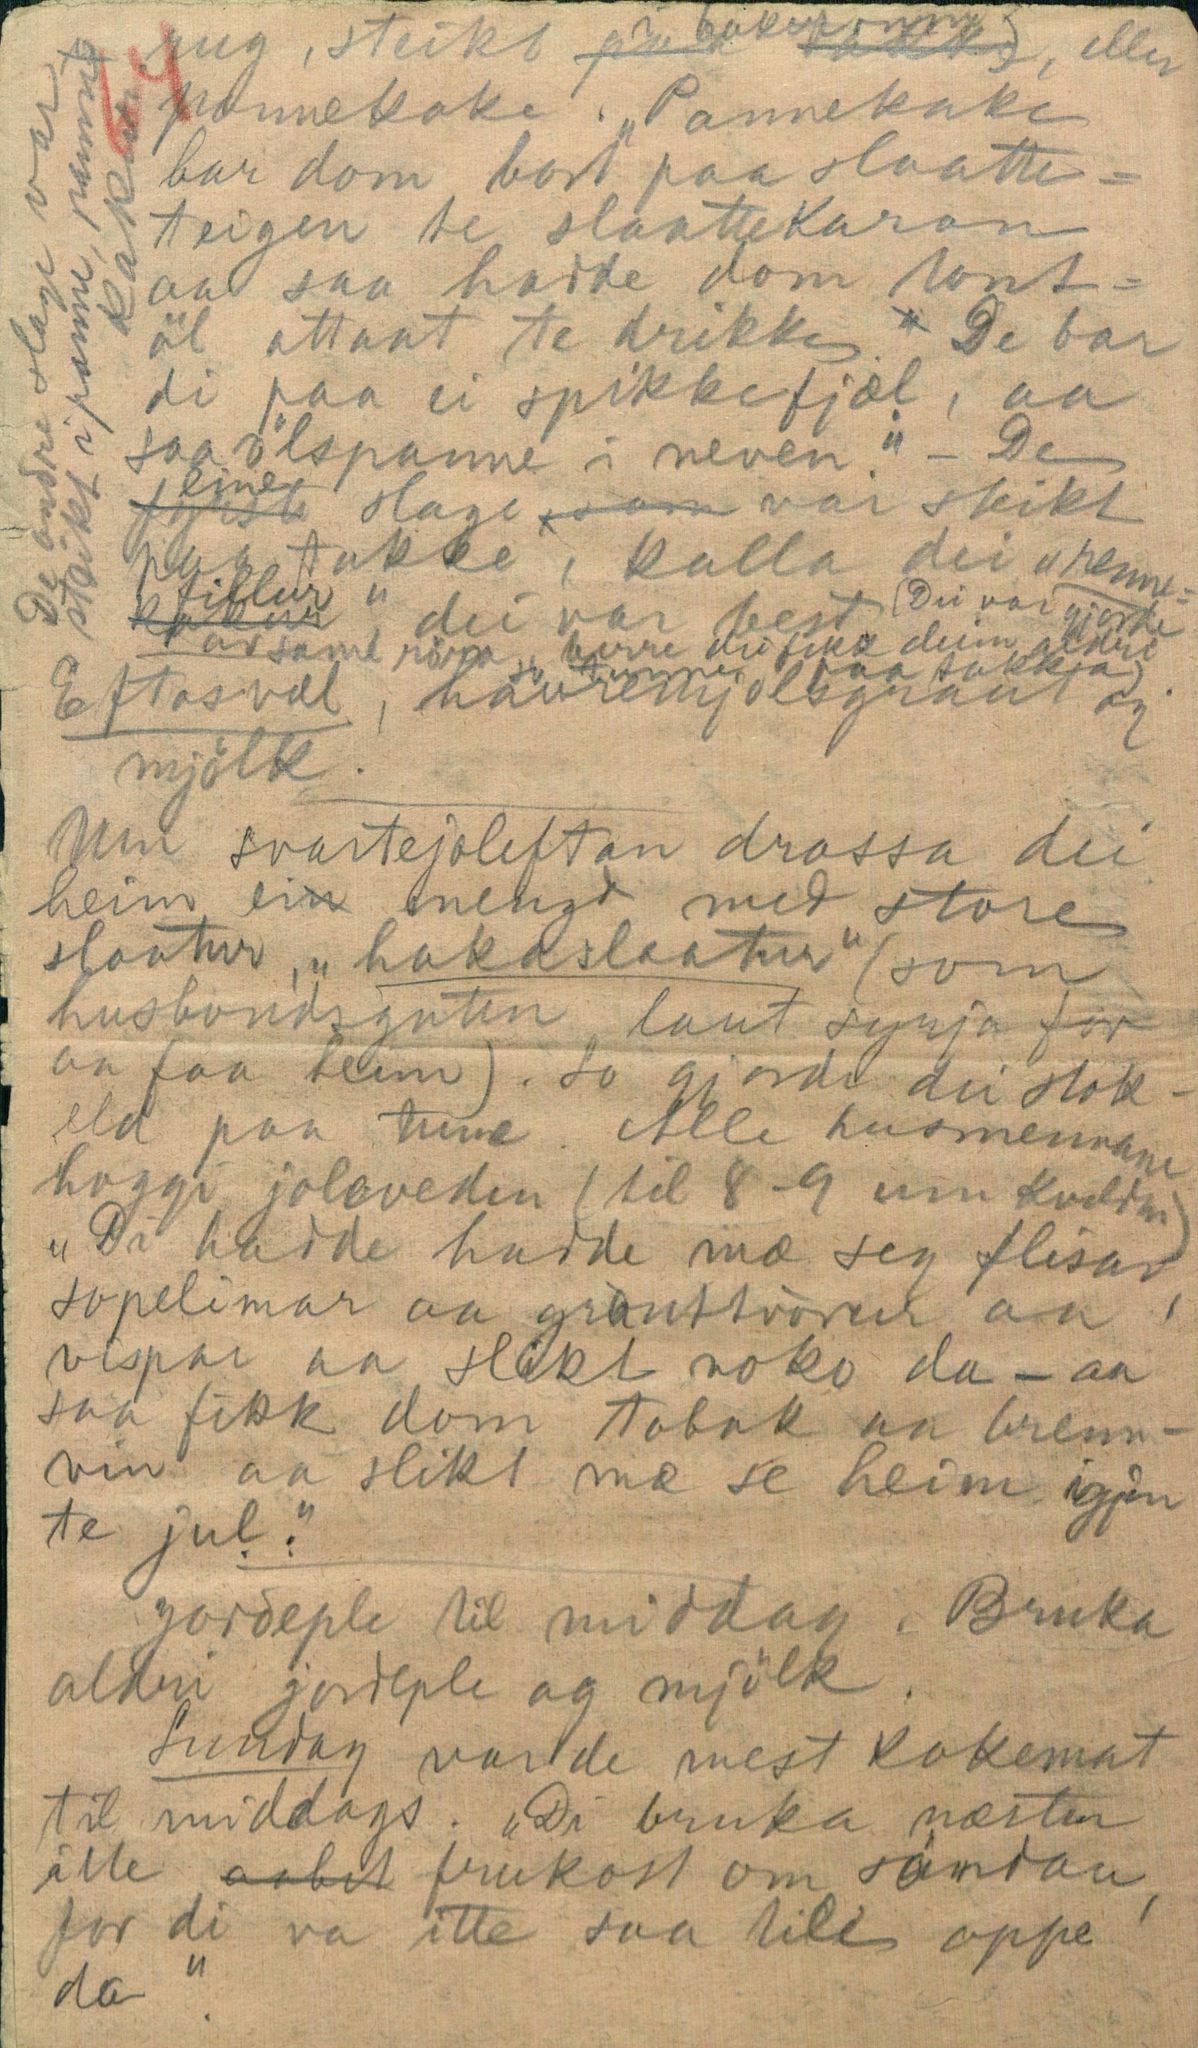 64
rug, steikt i bakeromn, eller
pannekake. "Pannekake
bar dom bort paa slaatte=
teigen te slaattekaran
aa saa hadde dom tont=
öl attaat te drikke." De bar
di paa ei spikkefjæl, aa
saa ölspanne i neven." – De
eine slage som var steikt
paa takke, kalla dei "renne=
fillur" dei var best (Dei var gjorde
av same röra, berre dei fekk deim aldri
so tunne paa takkja)
De andre slage var
steikt i panne, pannekakur.
Eftasvæl, havremjölsgraut og
mjölk.
Um svartejoleftan drassa dei
heim ein mengd med store
slaatur, "hakaslaatur" (som
husbondsguten laut syrja for
aa faa heim). So gjorde dei stok-
eld paa tune. Alle husmennane
hoggi joleveden (til 8-9 um kvelden)
"Di hadde hadde mæ seg flisar,
sopelimar aa grauttvörur aa
vispar aa slikt noko da – aa
saa fikk dom tobak aa brenn-
vin aa slikt mæ se heim igjön
te jul."
Jordeple til middag. Bruka
aldri jordeple og mjölk.
Sundag var de mest kokemat
til middags. "Di bruka næsten
itte aabit frukost om söndan,
for di va itte saa tile oppe
da".